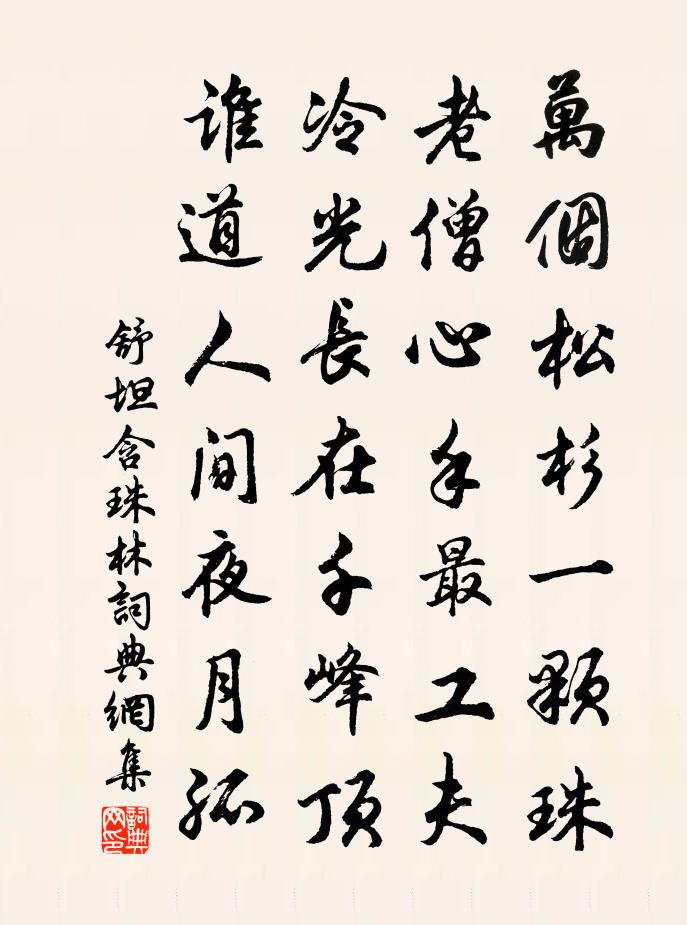 萬個松杉一顆珠
老僧心手最工夫
冷光長在千峰頂
誰道人間夜月孤
舒坦含珠林詞典網集
詞典網印